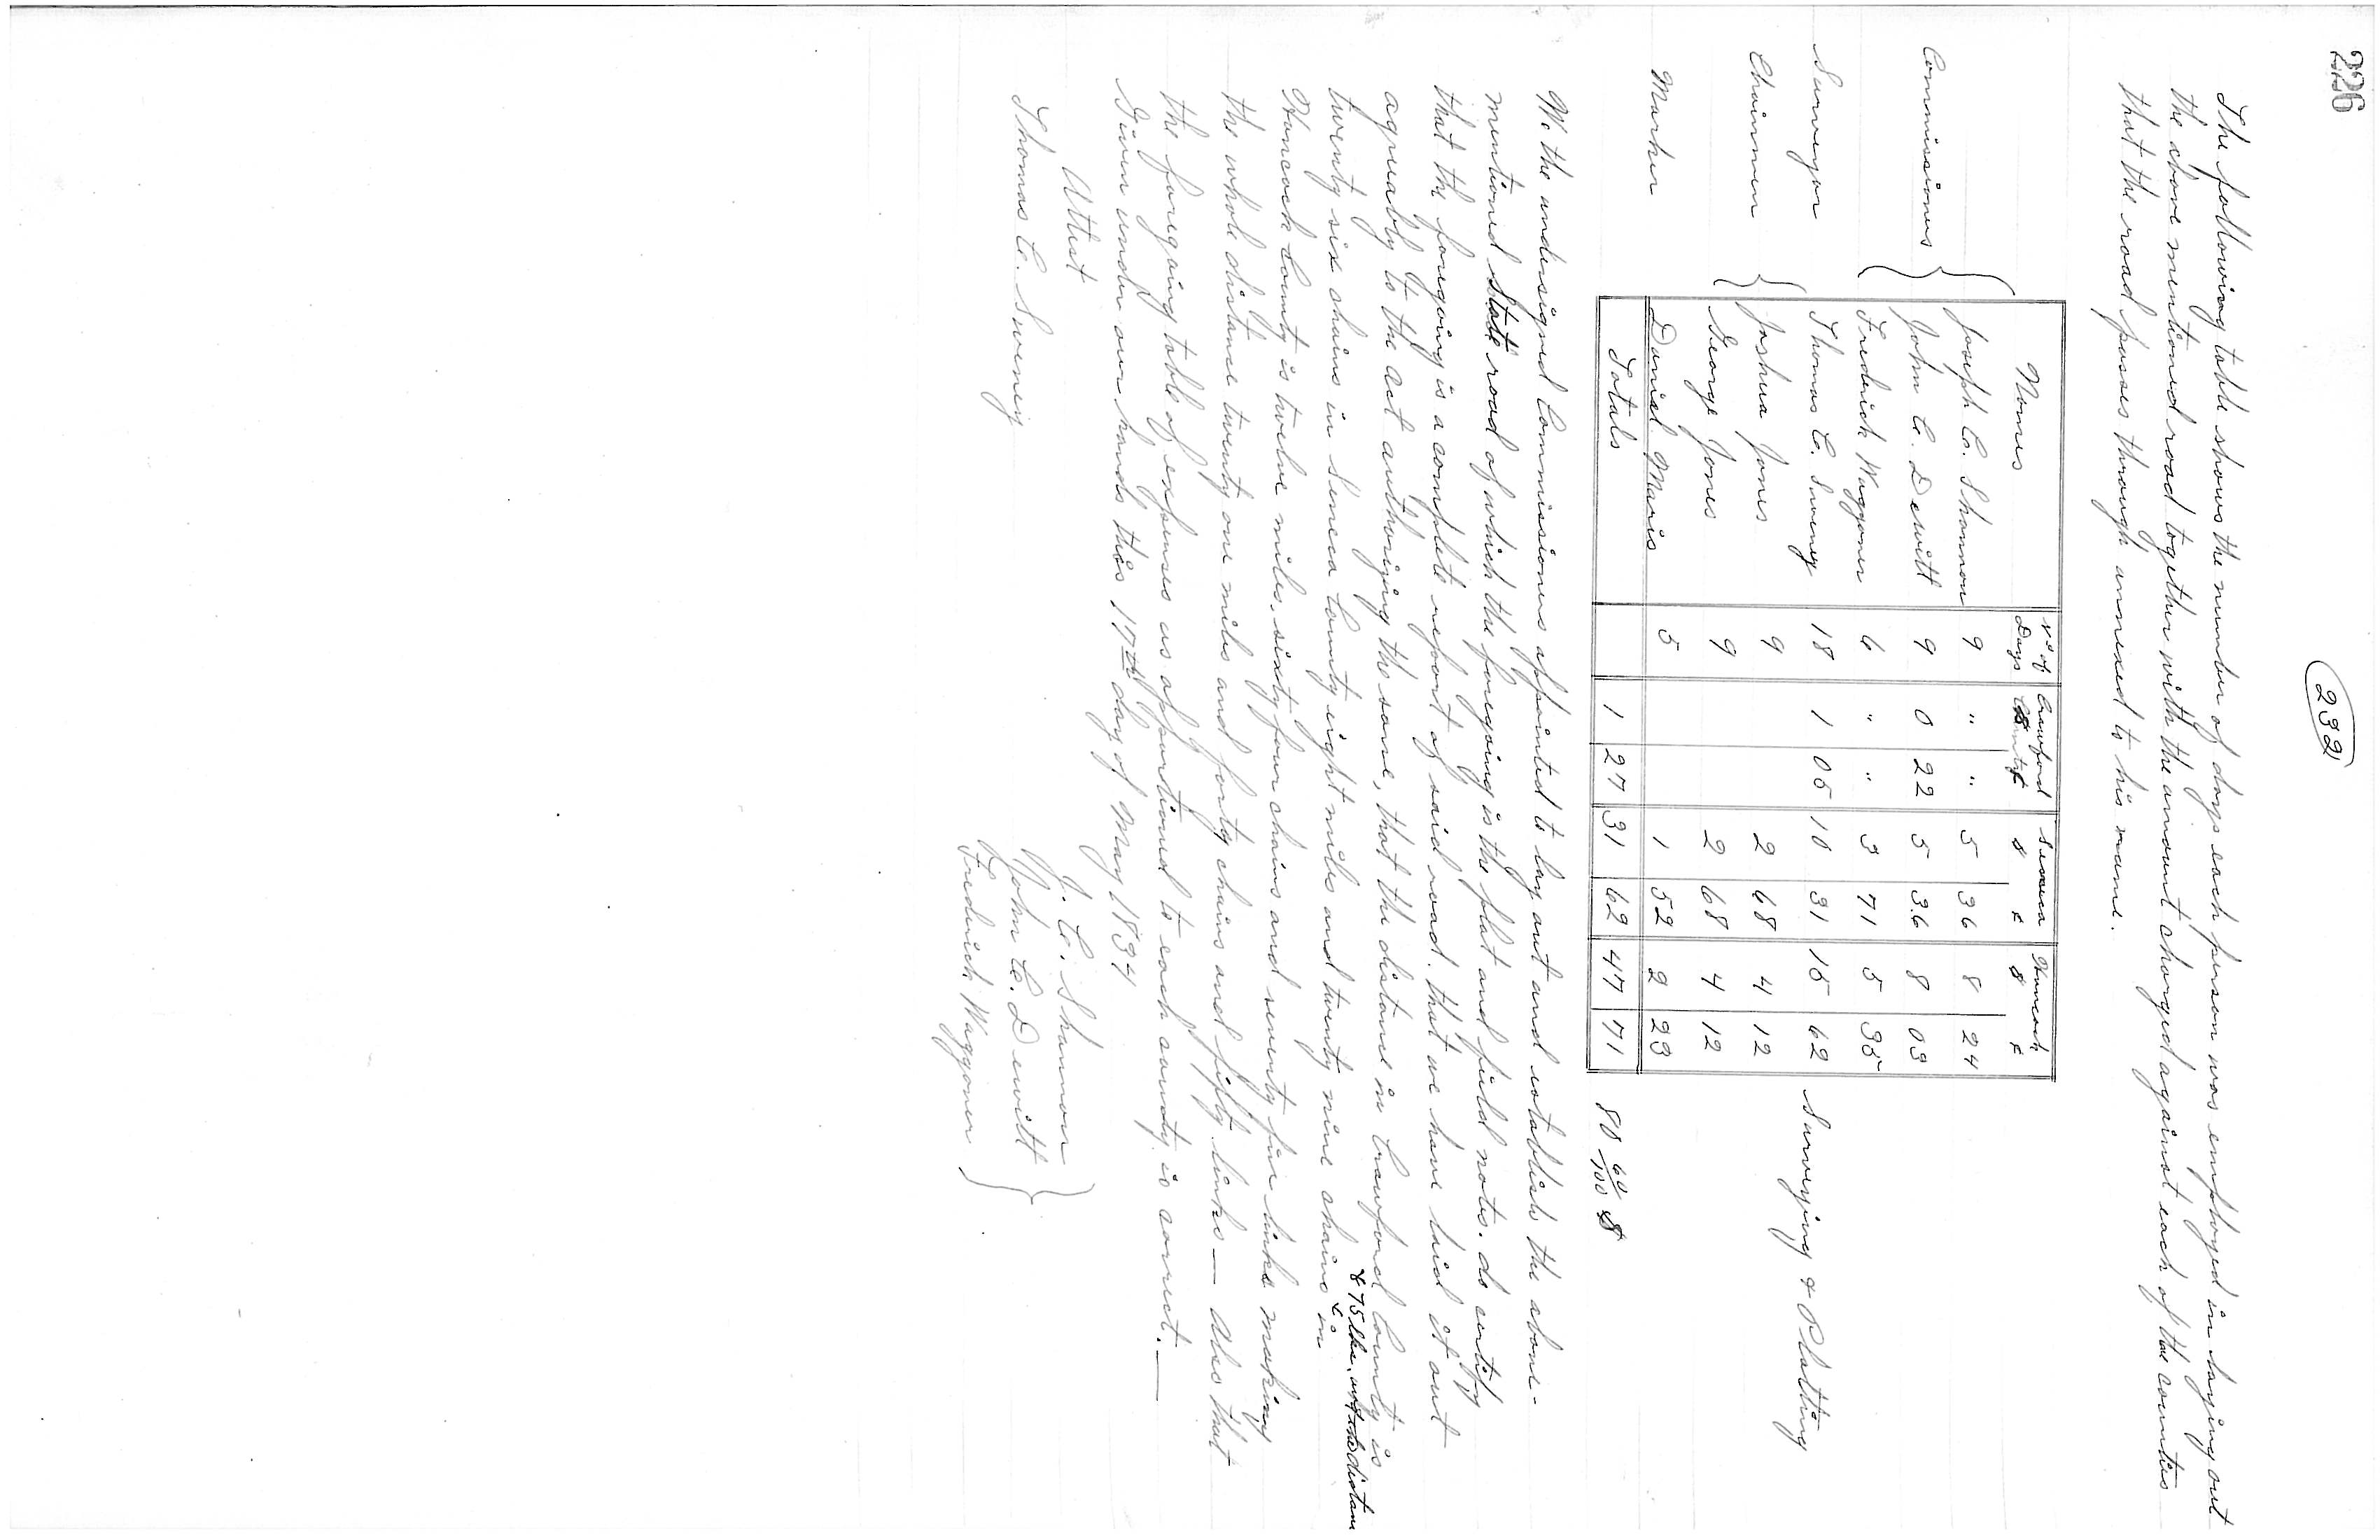 226
232
The following table shows the number of days each person was employed in laying out
the above mentioned road together with the amount charged against each of the counties
that the road passes through annexed to his name.
Names No of Days Crawford County Seneca $ ¢ Hancock $ ¢
Commissioners { Joseph C. Shannon 9 " " 5 36 8 24
John C. Dewitt 9 0 22 5 36 8 03
Fredrick Waggoner 6 " " 3 71 5 35
Surveyor Thomas C. Sweney 18 1 05 10 31 15 62 Surveying & Platting
Chainmen { Joshua Jones 9 2 68 4 12
George Jones 9 2 68 4 12
Marker Daniel Maris 5 1 52 2 23
Totals 1 27 31 62 47 71 80 60/100 $
We the undersigned Commissioners appointed to lay out and establish the above-
mentioned State road of which the foregoing is the plat and field notes. do certify
that the foregoing is a complete report of said road. that we have laid it out
agreeably to the act authorizing the same, that the distance in Crawford County is
twenty six chains in Seneca County eight miles and twenty nine chains in
& 75 lks. and the distanc
Hancock County is twelve miles, sixty four chains and seventy five links making
the whole distance twenty one miles and forty chains and fifty links — Also that
the foregoing table of expenses as apportioned to each county is correct. —
Given under our hands this 17th day of May 1834
Attest J. C. Shannon }
Thomas C. Sweney John C. Dewitt
Fredrick Waggoner